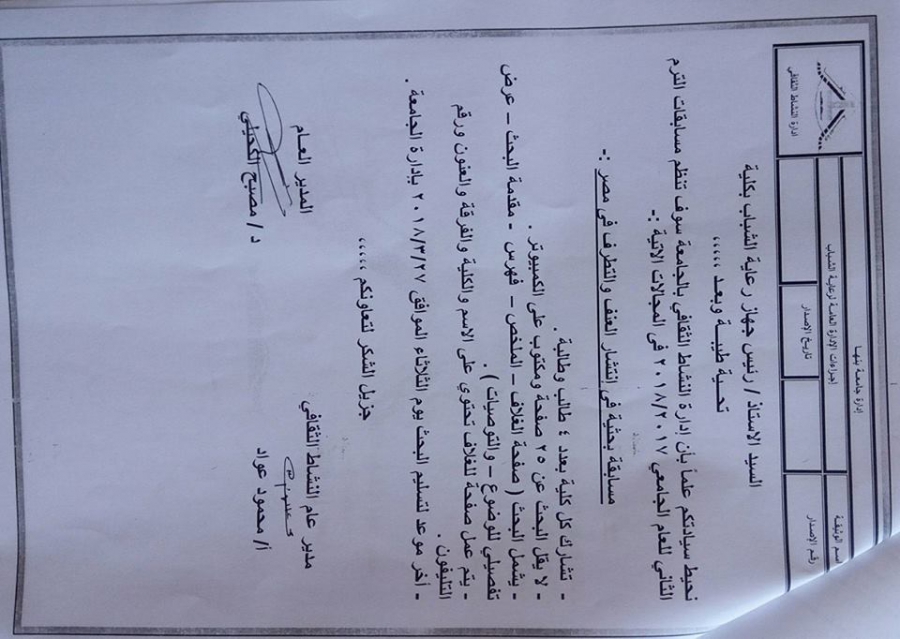 إدارة جامعة بنها
اسم الوثيقة
إجراءات الإدارة العامة لرعاية الشباب
رقم الإصدار
تاريخ الإصدار
ادارة النشاط الثقافي
السيد الاستاذ / رئيس جهاز رعاية الشباب بكلية
تحـــية طيبـــة وبعـد ،،،،،
نحيط سيادتكم علماً بأن إدارة النشاط الثقافي بالجامعة سوف تنظم مسابقات الترم
الثاني للعام الجامعي ٢٠١٨/٢٠١٧ فى المجالات الاتية :-
مسابقة بحثية فى إنتشار العنف والتطرف فى مصر :-
- تشارك كل كلية بعدد ٤ طالب وطالبة .
- لا يقل البحث عن ٢٥ صفحة ومكتوب على الكمبيوتر .
- يشمل البحث ( صفحة الغلاف – الملخص – فهرس – مقدمة البحث – عرض
تفصيلي للوضوع – والتوصيات ) .
- يتم عمل صفحة للغلاف تحتوي على الاسم والكلية والفرقة والعنون ورقم
التليفون .
- أخر موعد لتسليم البحث يوم الثلاثاء الموافق ٢٠١٨/٣/٢٧ بإدارة الجامعة .
جزيل الشكر لتعاونكم ،،،،،
مدير عام النشاط الثقافي
المدير العـام
أ/ محمود عواد
د / مصبح الكحيلي